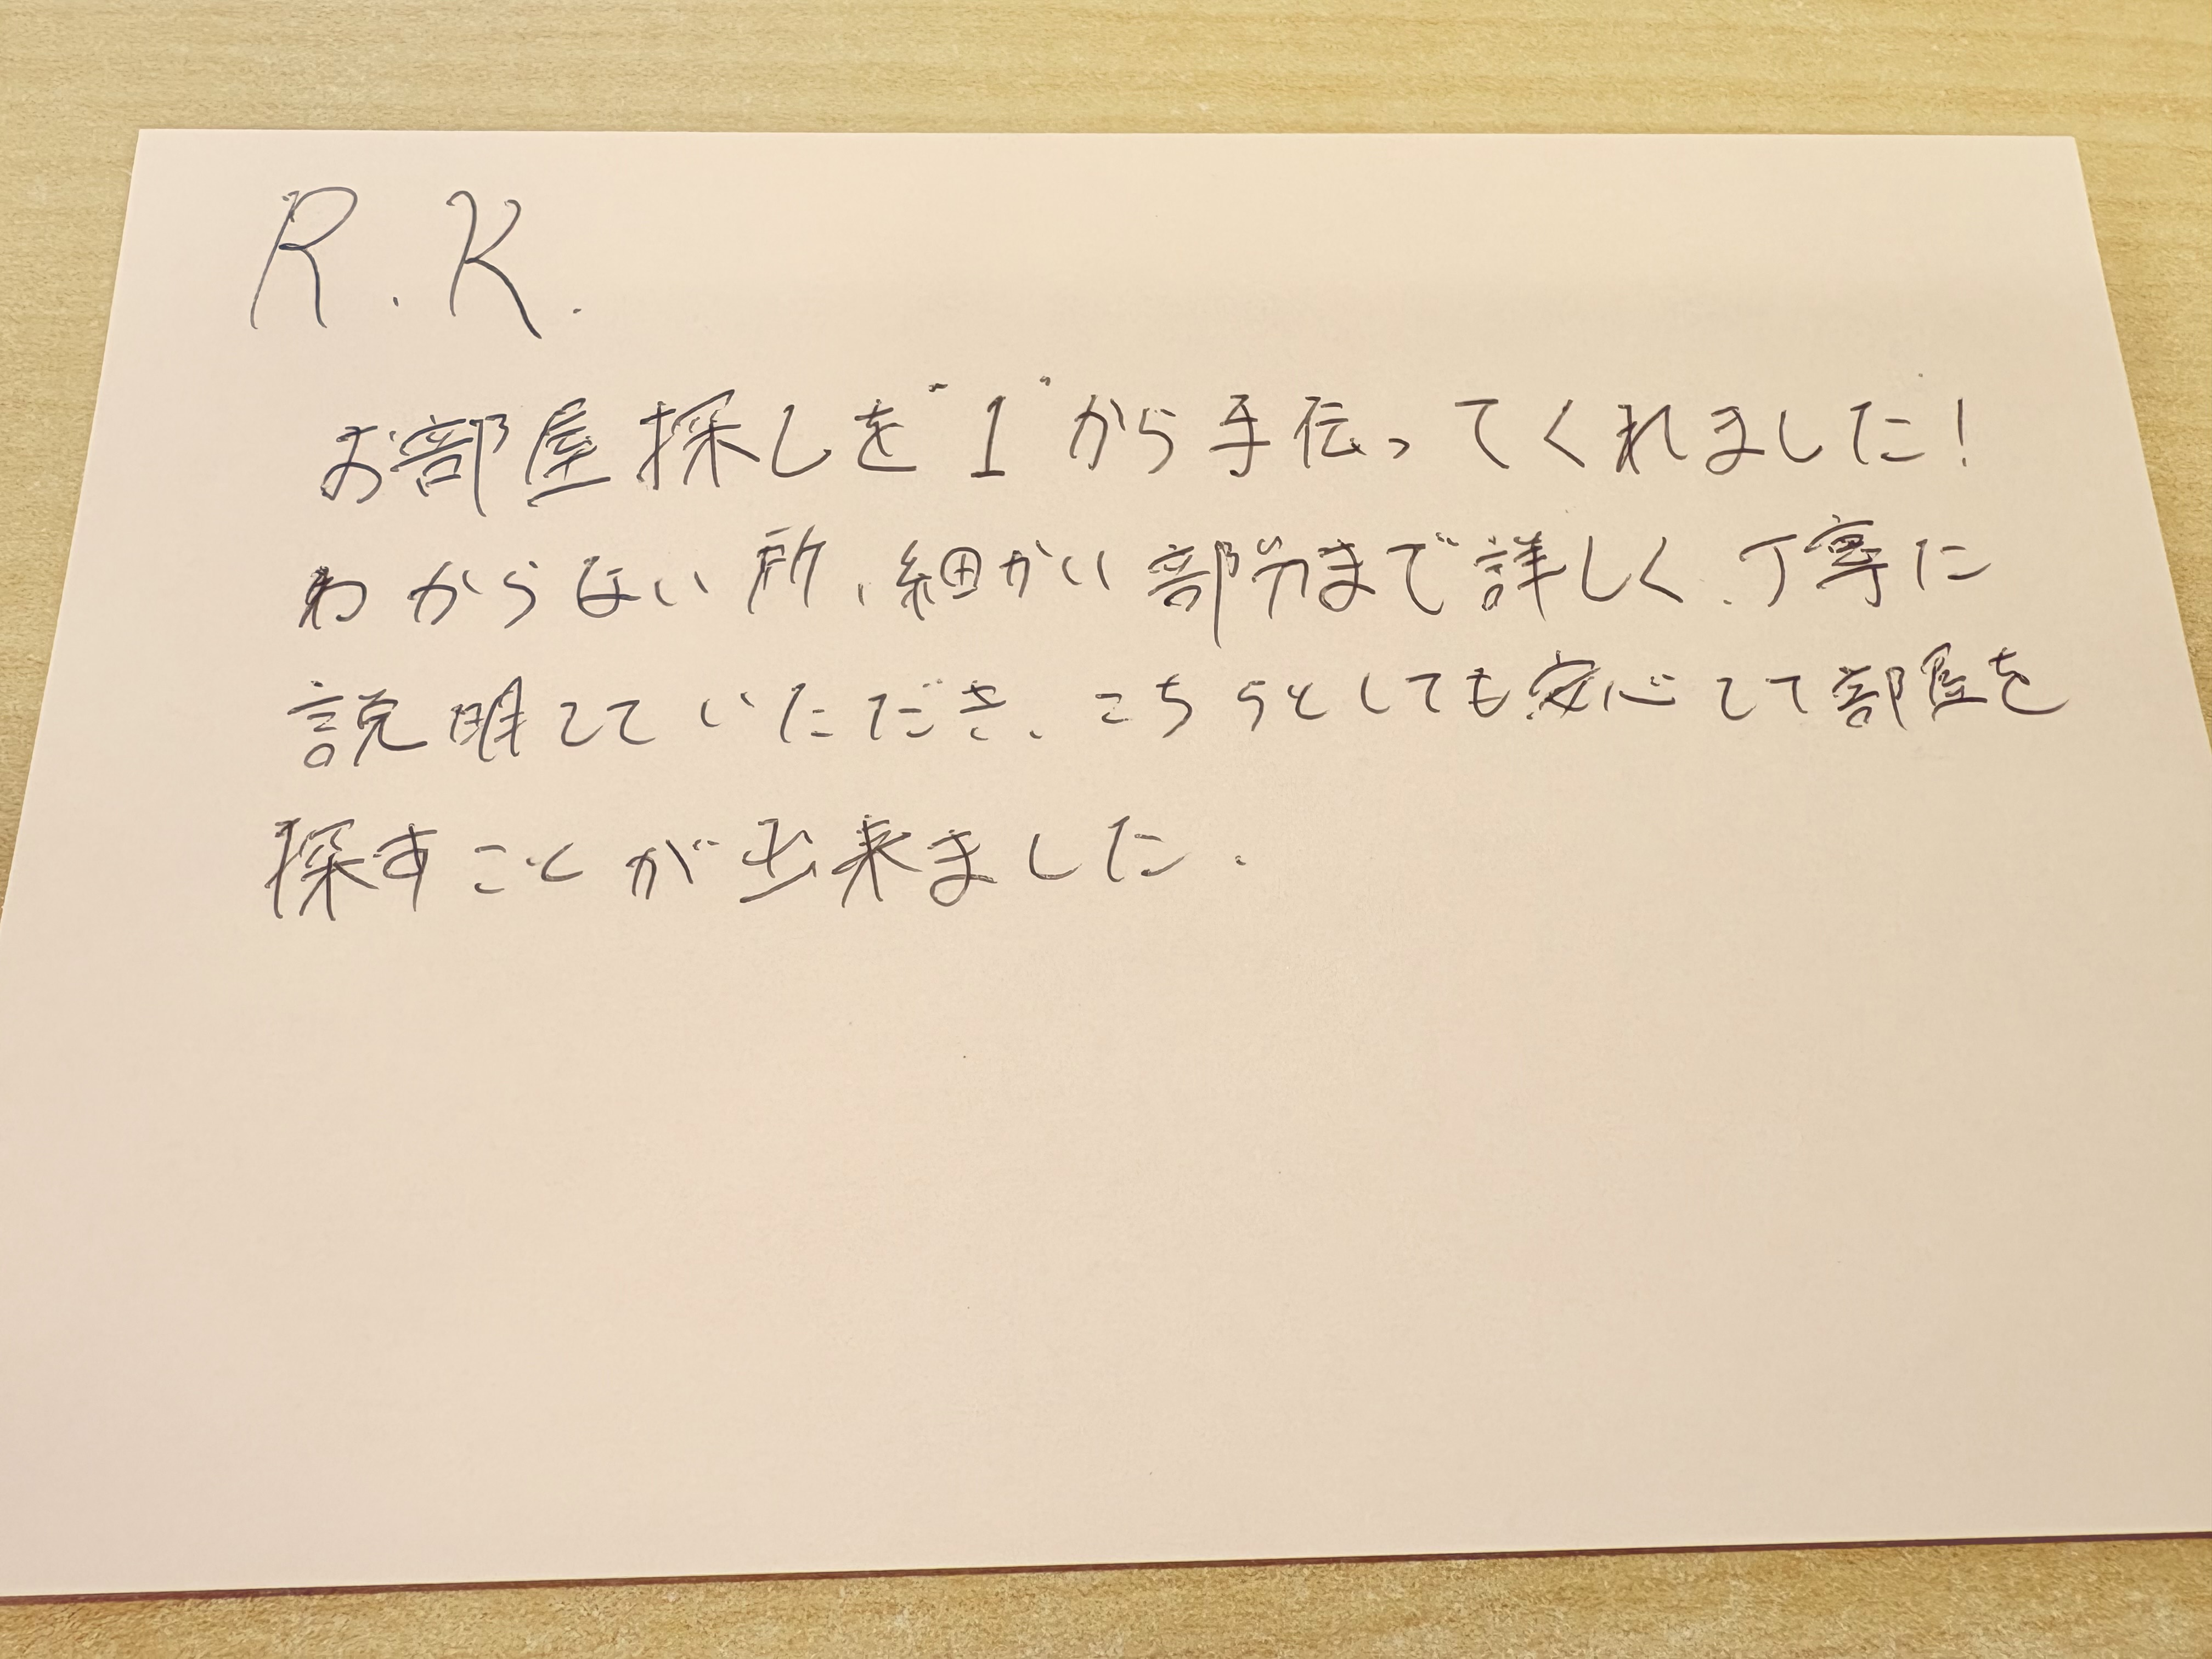 R.K.
お部屋探しを"1"から手伝ってくれました!
わからない所、細かい部分まで詳しく、丁寧に
説明していただき、こちらとしても安心して部屋を
探すことが出来ました.